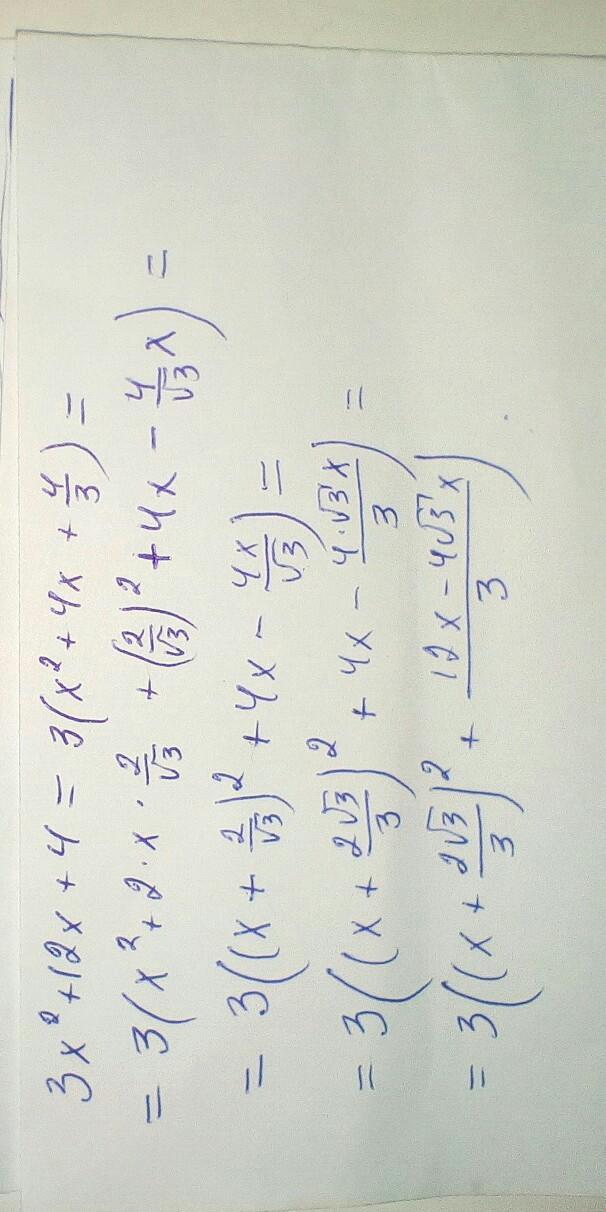 3x² + 12x + 4 = 3(x² + 4x + 4/3) =
= 3(x² + 2·x·2/√3 + (2/√3)² + 4x - 4/√3 x) =
= 3((x + 2/√3)² + 4x - 4x/√3) =
= 3((x + 2√3/3)² + 4x - 4·√3x/3) =
= 3((x + 2√3/3)² + (12x - 4√3x)/3)